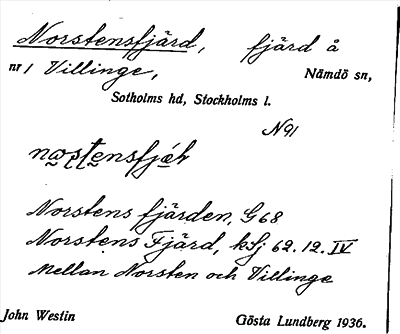 Norstensfjärd, fjärd å
nr 1 Villinge, Nämdö sn,
Sotholms hd, Stockholms l.
N91
Norstens fjärden, G68
Norstens Fjärd, kSj 62.12.IV
Mellan Norsten och Villinge
John Westin Gösta Lundberg 1936.